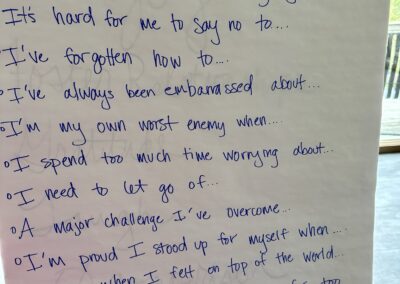 It's hard for me to say no to....
I've forgotten how to....
I've always been embarrassed about...
I'm my own worst enemy when....
I spend too much time worrying about...
I need to let go of...
A major challenge I've overcome...
I'm proud I stood up for myself when....
when I felt on top of the world...
for too